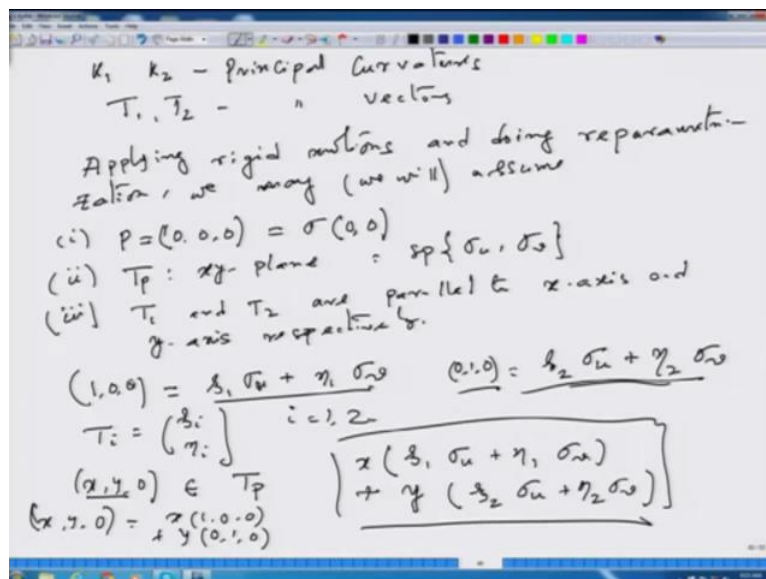 K₁ K₂ - Principal Curvatures
T₁, T₂ - " vectors
Applying rigid motions and doing reparametri-
zation, we may (we will) assume
(i) P = (0, 0, 0) = σ(0, 0)
(ii) Tp : xy-plane = sp{σu, σv}
(iii) T₁ and T₂ are parallel to x-axis and
y-axis respectively.
(1, 0, 0) = ξ₁ σu + η₁ σv (0, 1, 0) = ξ₂ σu + η₂ σv
Tᵢ = (ξᵢ ηᵢ) i = 1, 2
(x, y, 0) ∈ Tp
x (ξ₁ σu + η₁ σv)
+ y (ξ₂ σu + η₂ σv)
(x, y, 0) = x(1, 0, 0)
+ y(0, 1, 0)